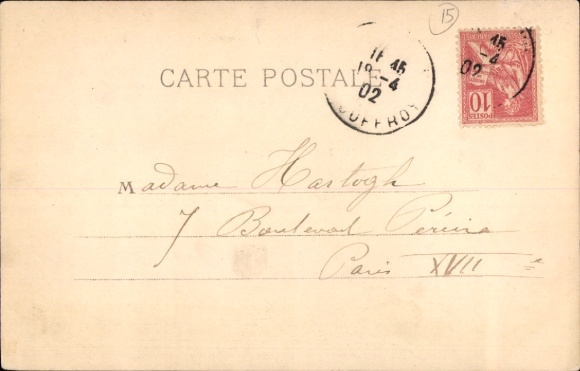 15
CARTE POSTALE
16 45
18 -4
02
45
-4
02
POSTES
10
Madame Hartogh
7 Boulevard Péreire
Paris XVII e